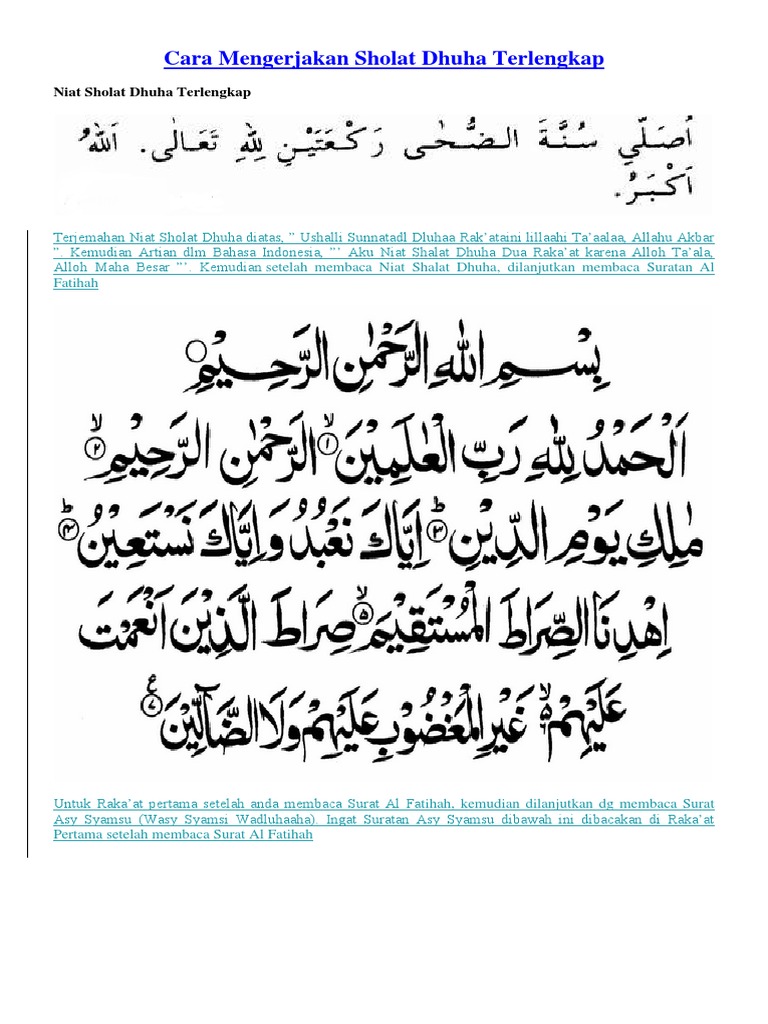 Cara Mengerjakan Sholat Dhuha Terlengkap
Niat Sholat Dhuha Terlengkap
اُصَلِّي سُنَّةَ الضُّحٰى رَكْعَتَيْنِ لِلّٰهِ تَعَالٰى. اَللّٰهُ
اَكْبَرُ.
Terjemahan Niat Sholat Dhuha diatas, ” Ushalli Sunnatadl Dluhaa Rak’ataini lillaahi Ta’aalaa, Allahu Akbar
”. Kemudian Artian dlm Bahasa Indonesia, ”’ Aku Niat Shalat Dhuha Dua Raka’at karena Alloh Ta’ala,
Alloh Maha Besar ”’. Kemudian setelah membaca Niat Shalat Dhuha, dilanjutkan membaca Suratan Al
Fatihah
بِسْمِ اللّٰهِ الرَّحْمٰنِ الرَّحِيْمِ ○
اَلْحَمْدُ لِلّٰهِ رَبِّ الْعٰلَمِيْنَ ۙ﴿١﴾ الرَّحْمٰنِ الرَّحِيْمِ ۙ﴿٢﴾
مٰلِكِ يَوْمِ الدِّيْنِ ۗ﴿٣﴾ اِيَّاكَ نَعْبُدُ وَاِيَّاكَ نَسْتَعِيْنُ ۗ﴿٤﴾
اِهْدِنَا الصِّرَاطَ الْمُسْتَقِيْمَ ۙ﴿٥﴾ صِرَاطَ الَّذِيْنَ اَنْعَمْتَ
عَلَيْهِمْ ۙ۬ غَيْرِ الْمَغْضُوْبِ عَلَيْهِمْ وَلَا الضَّآلِّيْنَ ࣖ﴿٧﴾
Untuk Raka’at pertama setelah anda membaca Surat Al Fatihah, kemudian dilanjutkan dg membaca Surat
Asy Syamsu (Wasy Syamsi Wadluhaaha). Ingat Suratan Asy Syamsu dibawah ini dibacakan di Raka’at
Pertama setelah membaca Surat Al Fatihah